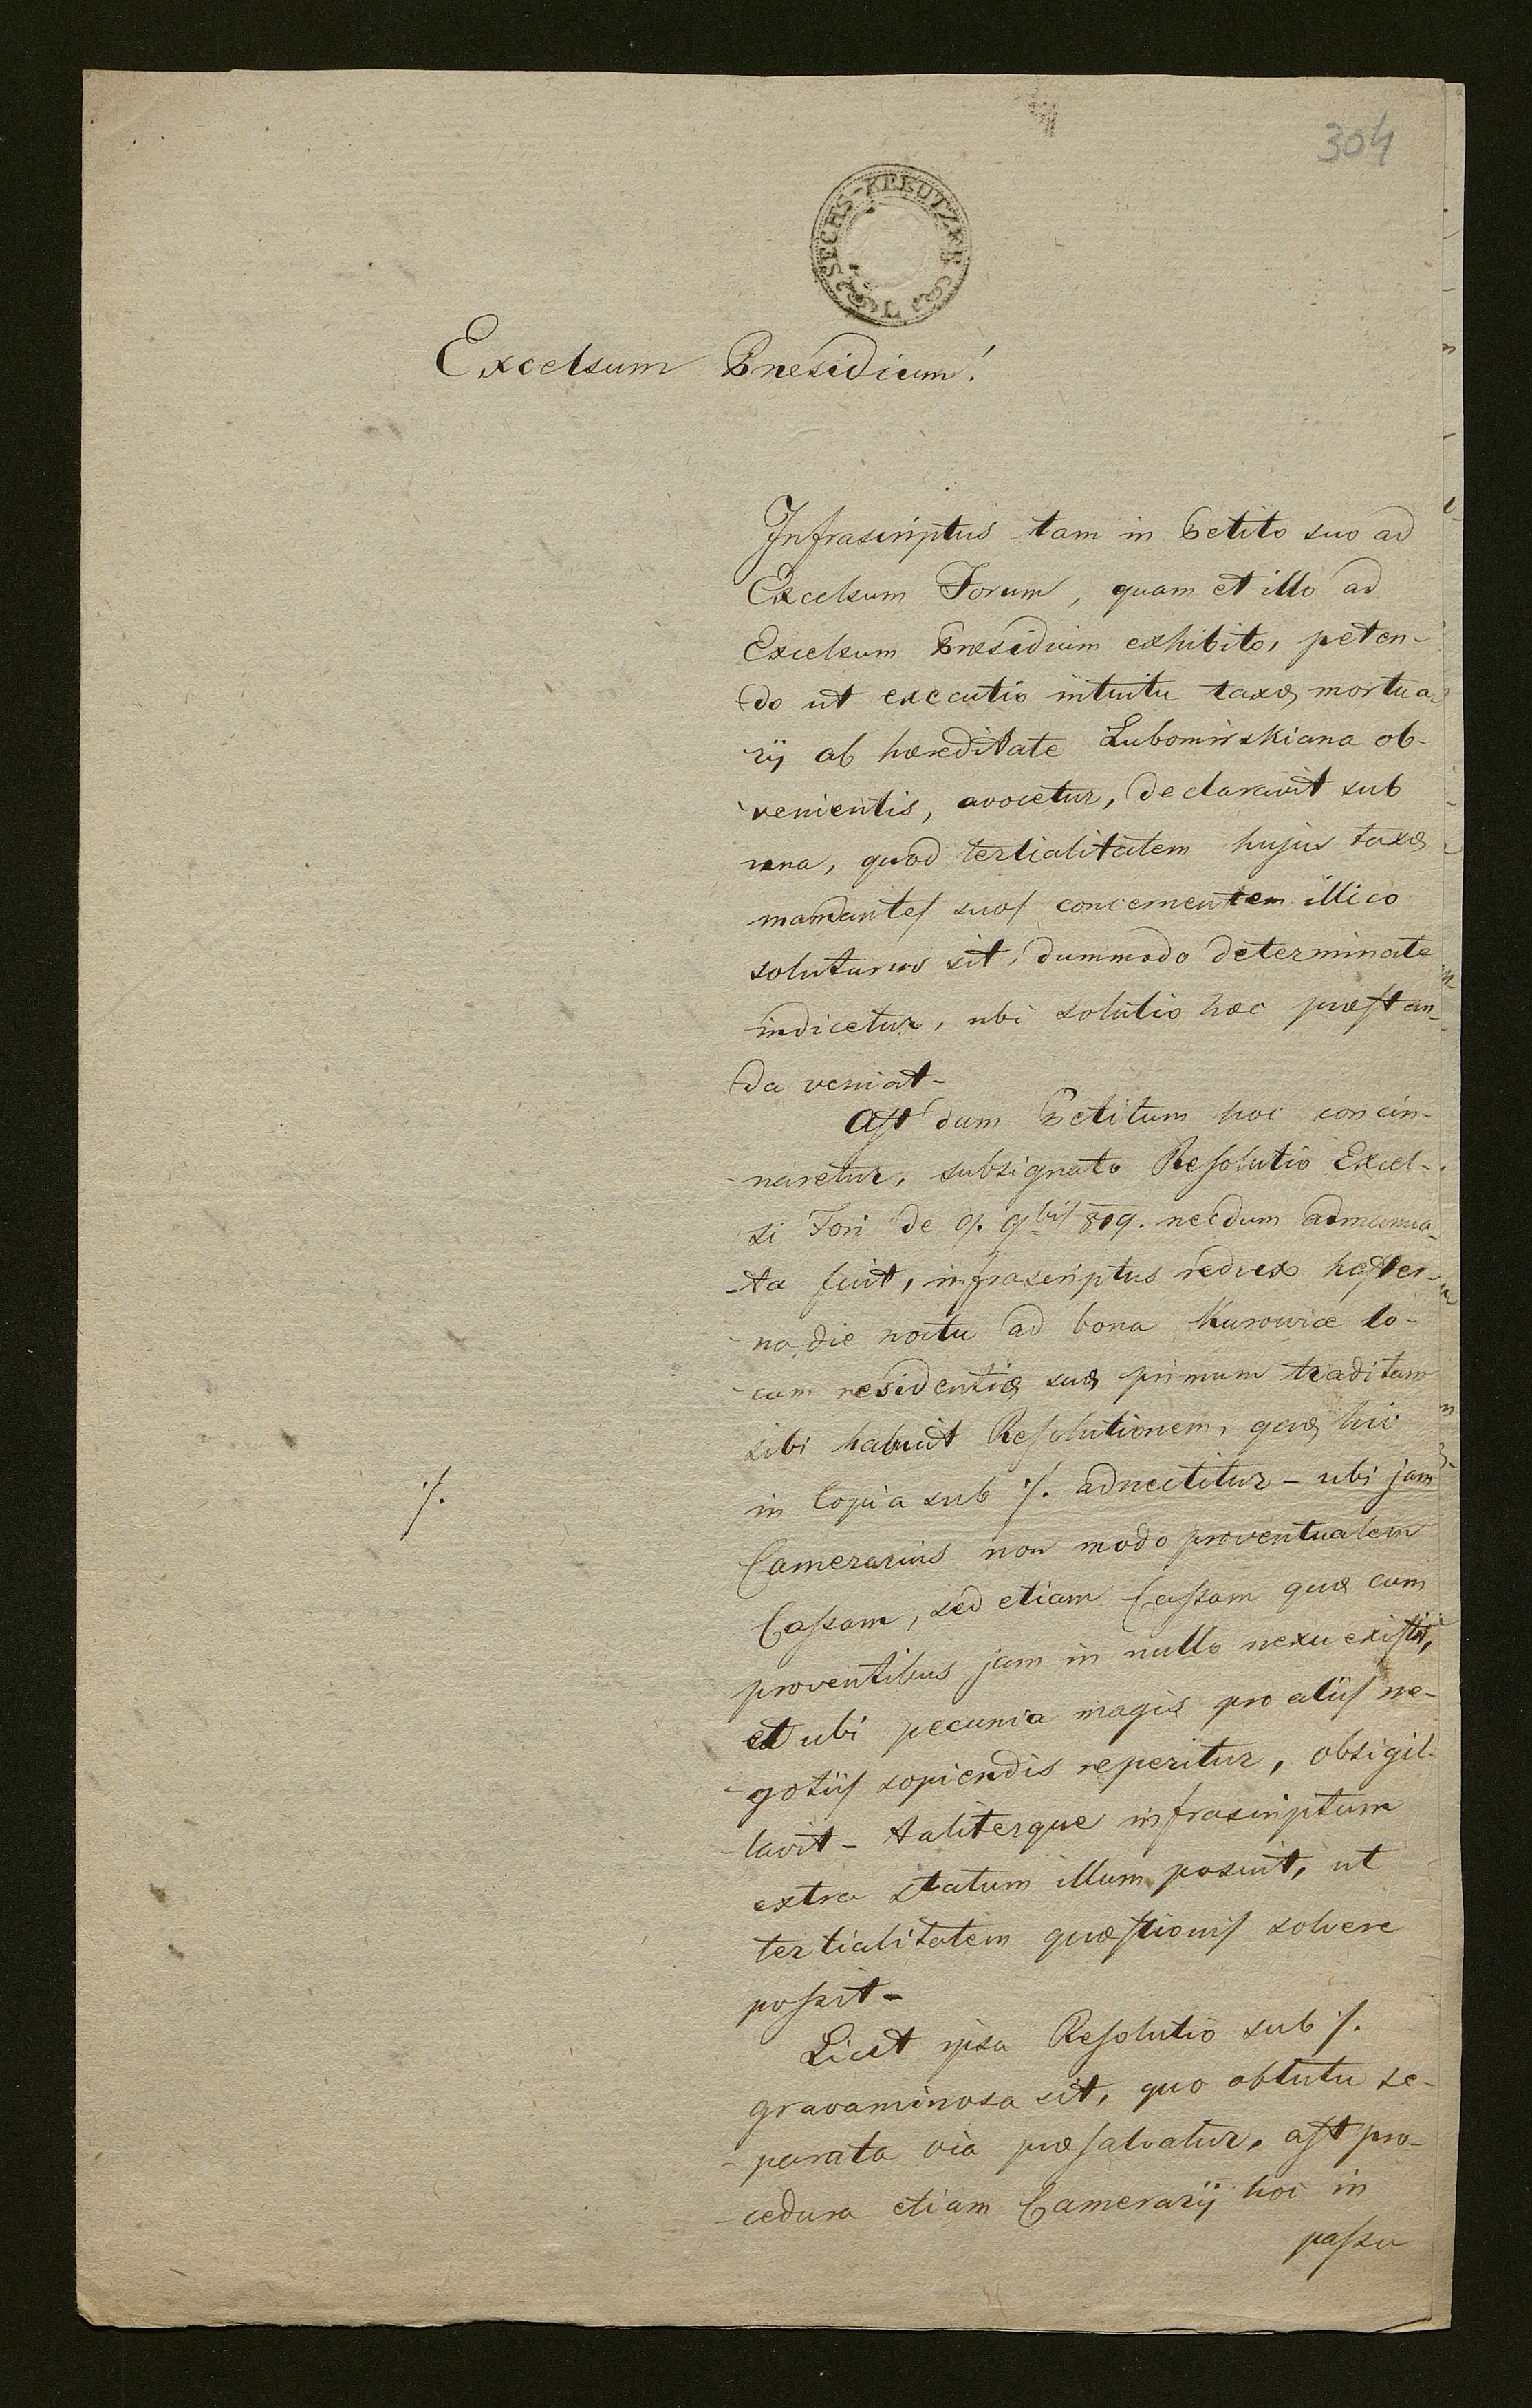 304
SECHS-KREUTZER
Excelsum Præsidium!
Infrascriptus tam in Petito suo ad
Excelsum Forum, quam et illo ad
Excelsum Præsidium exhibito, peten-
do ut executio intuitu taxæ mortua
rij ab hæreditate Lubomirskiana ob-
venientis, avocetur, declaravit sub
una, quod tertialitatem hujus taxæ
mandantes suos concernentem illico
soluturus sit, dummodo determinate
indicetur, ubi solutio hæc præstan-
da veniat-
Ast dum Petitum hoc concin-
naretur, subsignato Resolutio Excel-
si Fori de 9. 9bris 819. necdum admanua-
ta fuit, infrascriptus redux hester-
na die noctu ad bona Kurowice lo-
cum residentiæ suæ primum traditam
sibi habuit Resolutionem, quæ hic
in Copia sub ·/. adnectitur - ubi jam
·/.
Camerarius non modo proventualem
Cassam, sed etiam Cassam quæ cum
proventibus jam in nullo nexu existit,
et ubi pecunia magis pro aliis ne-
gotiis sopiendis reperitur, obsigil-
lavit - taliterque infrascriptum
extra statum illum posuit, ut
tertialitatem quæstionis solvere
possit-
Licet ipsa Resolutio sub ·/.
gravaminosa sit, quo obtutu se-
parata via præsalvatur, ast pro-
cedura etiam Camerarij hoc in
passu